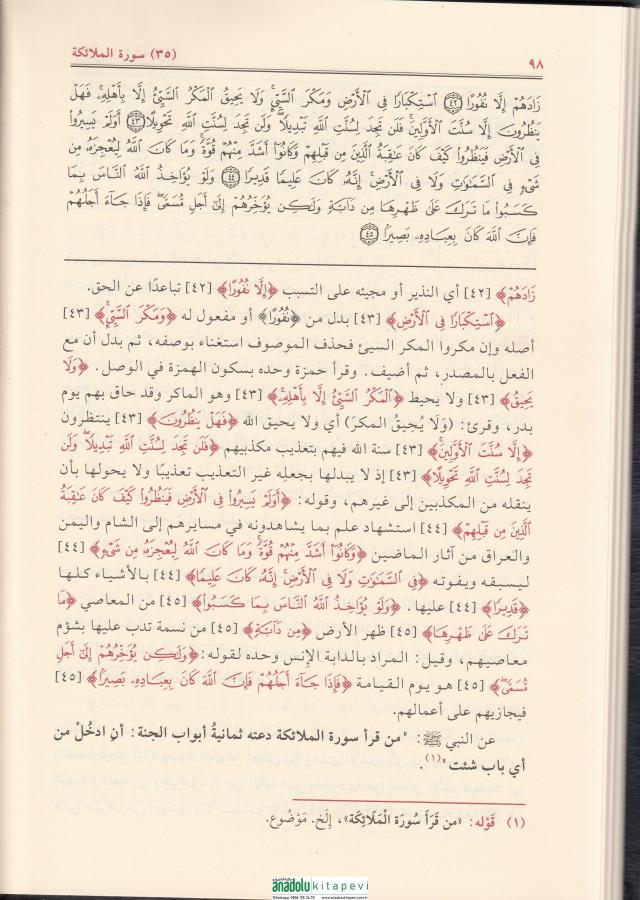 ٩٨
(٣٥) سورة الملائكة
زَادَهُمْ إِلَّا نُفُورًا ٤٢ ٱسْتِكْبَارًا فِى ٱلْأَرْضِ وَمَكْرَ ٱلسَّيِّئِ ۚ وَلَا يَحِيقُ ٱلْمَكْرُ ٱلسَّيِّئُ إِلَّا بِأَهْلِهِۦ ۚ فَهَلْ
يَنظُرُونَ إِلَّا سُنَّتَ ٱلْأَوَّلِينَ ۚ فَلَن تَجِدَ لِسُنَّتِ ٱللَّهِ تَبْدِيلًا ۖ وَلَن تَجِدَ لِسُنَّتِ ٱللَّهِ تَحْوِيلًا ٤٣ أَوَلَمْ يَسِيرُوا۟
فِى ٱلْأَرْضِ فَيَنظُرُوا۟ كَيْفَ كَانَ عَٰقِبَةُ ٱلَّذِينَ مِن قَبْلِهِمْ وَكَانُوٓا۟ أَشَدَّ مِنْهُمْ قُوَّةً ۚ وَمَا كَانَ ٱللَّهُ لِيُعْجِزَهُۥ مِن
شَىْءٍ فِى ٱلسَّمَٰوَٰتِ وَلَا فِى ٱلْأَرْضِ ۚ إِنَّهُۥ كَانَ عَلِيمًا قَدِيرًا ٤٤ وَلَوْ يُؤَاخِذُ ٱللَّهُ ٱلنَّاسَ بِمَا
كَسَبُوا۟ مَا تَرَكَ عَلَىٰ ظَهْرِهَا مِن دَآبَّةٍ وَلَٰكِن يُؤَخِّرُهُمْ إِلَىٰٓ أَجَلٍ مُّسَمًّى ۖ فَإِذَا جَآءَ أَجَلُهُمْ
فَإِنَّ ٱللَّهَ كَانَ بِعِبَادِهِۦ بَصِيرًۢا ٤٥
زَادَهُمْ﴾ [٤٢] أي النذير أو مجيئه على التسبب ﴿إِلَّا نُفُورًا﴾ [٤٢] تباعدًا عن الحق.
﴿ٱسْتِكْبَارًا فِى ٱلْأَرْضِ﴾ [٤٣] بدل من ﴿نُفُورًا﴾ أو مفعول له ﴿وَمَكْرَ ٱلسَّيِّئِ ۚ﴾ [٤٣]
أصله وإن مكروا المكر السيئ فحذف الموصوف استغناء بوصفه، ثم بدل أن مع
الفعل بالمصدر، ثم أضيف. وقرأ حمزة وحده بسكون الهمزة في الوصل. ﴿وَلَا
يَحِيقُ﴾ [٤٣] ولا يحيط ﴿ٱلْمَكْرُ ٱلسَّيِّئُ إِلَّا بِأَهْلِهِۦ ۚ﴾ [٤٣] وهو الماكر وقد حاق بهم يوم
بدر، وقرئ: (وَلَا يُحِيقُ المكرَ) أي ولا يحيق الله ﴿فَهَلْ يَنظُرُونَ﴾ [٤٣] ينتظرون
﴿إِلَّا سُنَّتَ ٱلْأَوَّلِينَ ۚ﴾ [٤٣] سنة الله فيهم بتعذيب مكذبيهم ﴿فَلَن تَجِدَ لِسُنَّتِ ٱللَّهِ تَبْدِيلًا ۖ وَلَن
تَجِدَ لِسُنَّتِ ٱللَّهِ تَحْوِيلًا﴾ [٤٣] إذ لا يبدلها بجعله غير التعذيب تعذيبًا ولا يحولها بأن
ينقله من المكذبين إلى غيرهم، وقوله: ﴿أَوَلَمْ يَسِيرُوا۟ فِى ٱلْأَرْضِ فَيَنظُرُوا۟ كَيْفَ كَانَ عَٰقِبَةُ
ٱلَّذِينَ مِن قَبْلِهِمْ﴾ [٤٤] استشهاد علم بما يشاهدونه في مسايرهم إلى الشام واليمن
والعراق من آثار الماضين ﴿وَكَانُوٓا۟ أَشَدَّ مِنْهُمْ قُوَّةً ۚ وَمَا كَانَ ٱللَّهُ لِيُعْجِزَهُۥ مِن شَىْءٍ﴾ [٤٤]
ليسبقه ويفوته ﴿فِى ٱلسَّمَٰوَٰتِ وَلَا فِى ٱلْأَرْضِ ۚ إِنَّهُۥ كَانَ عَلِيمًا﴾ [٤٤] بالأشياء كلها
﴿قَدِيرًا﴾ [٤٤] عليها. ﴿وَلَوْ يُؤَاخِذُ ٱللَّهُ ٱلنَّاسَ بِمَا كَسَبُوا۟﴾ [٤٥] من المعاصي ﴿مَا
تَرَكَ عَلَىٰ ظَهْرِهَا﴾ [٤٥] ظهر الأرض ﴿مِن دَآبَّةٍ﴾ [٤٥] من نسمة تدب عليها بشؤم
معاصيهم، وقيل: المراد بالدابة الإنس وحده لقوله: ﴿وَلَٰكِن يُؤَخِّرُهُمْ إِلَىٰٓ أَجَلٍ
مُّسَمًّى ۖ﴾ [٤٥] هو يوم القيامة ﴿فَإِذَا جَآءَ أَجَلُهُمْ فَإِنَّ ٱللَّهَ كَانَ بِعِبَادِهِۦ بَصِيرًۢا﴾ [٤٥]
فيجازيهم على أعمالهم.
عن النبي ﷺ: "من قرأ سورة الملائكة دعته ثمانيةُ أبواب الجنة: أنِ ادخُلْ من
أي باب شئت"(١).
(١) قَوْله: «من قَرَأَ سُورَة الْمَلَائِكَة»، إِلَخ. مَوْضُوع.
anadolu kitapevi
www.anadolukitapevi.com